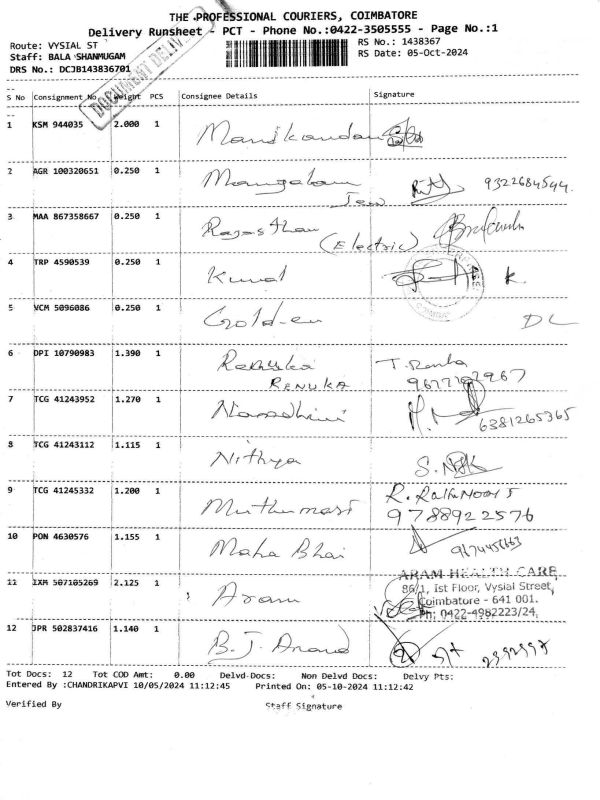 THE PROFESSIONAL COURIERS, COIMBATORE
Delivery Runsheet - PCT - Phone No.:0422-3505555 - Page No.:1
Route: VYSIAL ST
RS No.: 1438367
Staff: BALA SHANMUGAM
RS Date: 05-Oct-2024
DRS No.: DCJB143836701
DOCUMENT DELIV
S No Consignment No. Weight PCS Consignee Details Signature
1 KSM 944035 2.000 1 Manikandan
2 AGR 100320651 0.250 1 Mangalam 9322684594
Jew
3 MAA 867358667 0.250 1 Rajasthan
(Electric)
4 TRP 4590539 0.250 1 Kunal K.
5 VCM 5096086 0.250 1 Golden DL
6 DPI 10790983 1.390 1 Renuka T. Renka
RENUKA
7 TCG 41243952 1.270 1 6381265365
8 TCG 41243112 1.115 1 Nithya
9 TCG 41245332 1.200 1 Muthumari
9788922576
10 PON 4630576 1.155 1 Maha Bhai
ARAM HEALTH CARE
11 IXM 507105269 2.125 1 Aram 86/1, Ist Floor, Vysial Street,
Coimbatore - 641 001.
Ph: 0422-4982223/24,
12 JPR 502837416 1.140 1 B.J. Anand
Tot Docs: 12 Tot COD Amt: 0.00 Delvd Docs: Non Delvd Docs: Delvy Pts:
Entered By :CHANDRIKAPVI 10/05/2024 11:12:45 Printed On: 05-10-2024 11:12:42
Verified By Staff Signature